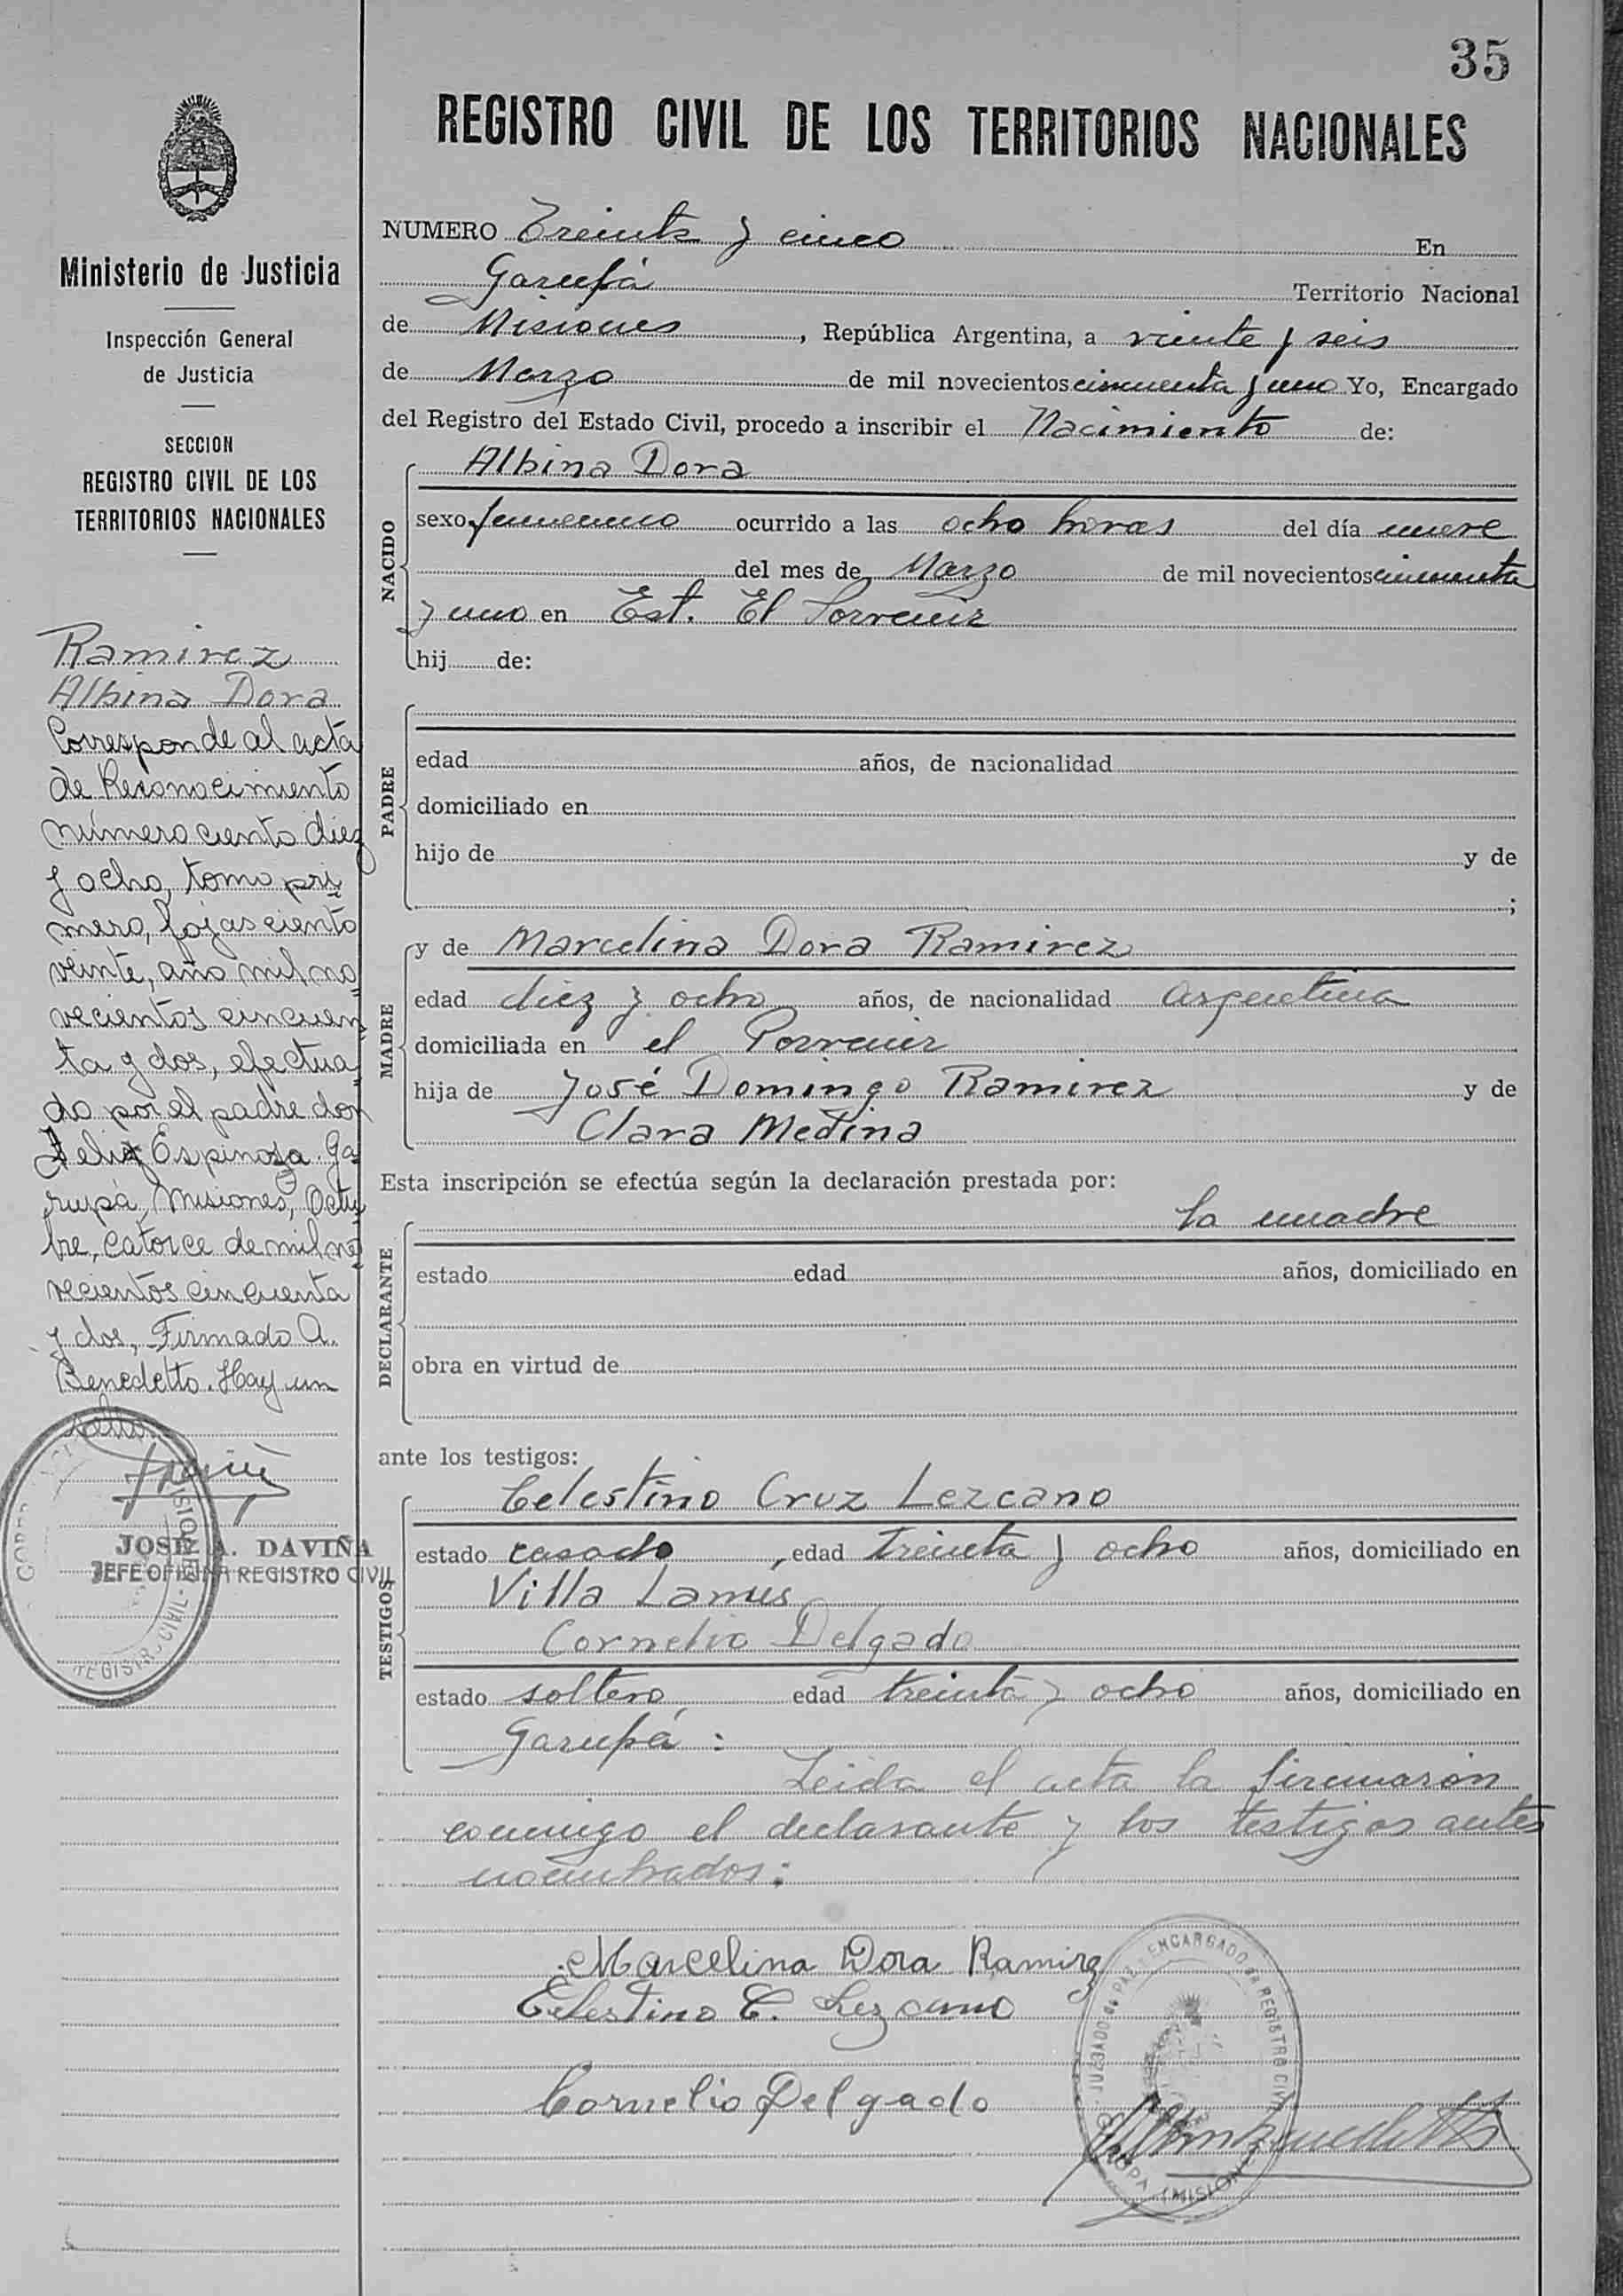 35
REGISTRO CIVIL DE LOS TERRITORIOS NACIONALES
Ministerio de Justicia
Inspección General
de Justicia
SECCION
REGISTRO CIVIL DE LOS
TERRITORIOS NACIONALES
Ramirez
Albina Dora
Corresponde al acta
de Reconocimiento
número ciento diez
y ocho, tomo pri
mero, fojas ciento
veinte, año mil no
vecientos cincuen
ta y dos, efectua
do por el padre don
Felix Espinosa. Ga
rupá, Misiones, Octu
bre, catorce de mil no
vecientos cincuenta
y dos, Firmado A.
Benedetto. Hay un
sello.
JOSE A. DAVIÑA
JEFE OFICINA REGISTRO CIVIL
NUMERO Treinta y cinco En
Garupá Territorio Nacional
de Misiones, República Argentina, a veinte y seis
de Marzo de mil novecientos cincuenta y uno Yo, Encargado
del Registro del Estado Civil, procedo a inscribir el Nacimiento de:
NACIDO
Albina Dora
sexo femenino ocurrido a las ocho horas del día nueve
del mes de Marzo de mil novecientos cincuenta
y uno en Est. El Porvenir
hij de:
PADRE
edad años, de nacionalidad
domiciliado en
hijo de y de
;
MADRE
y de Marcelina Dora Ramirez
edad diez y ocho años, de nacionalidad Argentina
domiciliada en el Porvenir
hija de José Domingo Ramirez y de
Clara Medina
Esta inscripción se efectúa según la declaración prestada por:
DECLARANTE
la madre
estado edad años, domiciliado en
obra en virtud de
ante los testigos:
TESTIGOS
Celestino Cruz Lezcano
estado casado, edad treinta y ocho años, domiciliado en
Villa Lanús
Cornelio Delgado
estado soltero edad treinta y ocho años, domiciliado en
Garupá:
Leida el acta la firmaron
conmigo el declarante y los testigos antes
nombrados:
Marcelina Dora Ramirez
Celestino C. Lezcano
Cornelio Delgado
JUZGADO de PAZ ENCARGADO DEL REGISTRO CIVIL